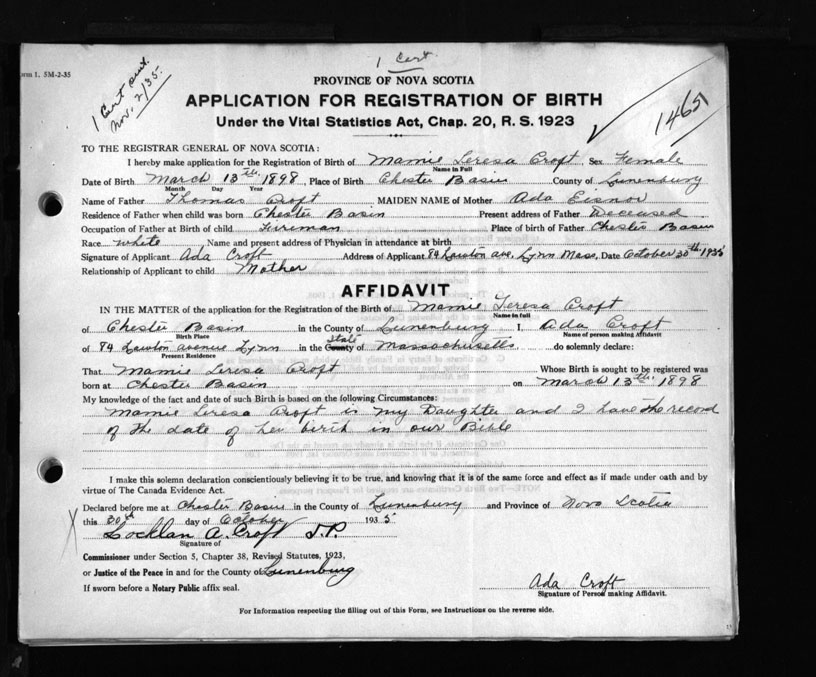 1 Cert.
orm 1. 5M-2-35
1 Cert out.
Nov. 2/35.
PROVINCE OF NOVA SCOTIA
APPLICATION FOR REGISTRATION OF BIRTH
Under the Vital Statistics Act, Chap. 20, R. S. 1923
1465
TO THE REGISTRAR GENERAL OF NOVA SCOTIA:
I hereby make application for the Registration of Birth of Mamie Teresa Croft, Sex Female
Name in Full
Date of Birth March 13th 1898, Place of Birth Chester Basin County of Lunenburg
Month Day Year
Name of Father Thomas Croft MAIDEN NAME of Mother Ada Eisnor
Residence of Father when child was born Chester Basin Present address of Father Deceased
Occupation of Father at Birth of child Fireman Place of birth of Father Chester Basin
Race White Name and present address of Physician in attendance at birth
Signature of Applicant Ada Croft Address of Applicant 84 Lawton ave. Lynn Mass. Date October 30th 1935
Relationship of Applicant to child Mother
AFFIDAVIT
IN THE MATTER of the application for the Registration of the Birth of Mamie Teresa Croft
Name in full
of Chester Basin in the County of Lunenburg I, Ada Croft
Birth Place Name of person making Affidavit
of 84 Lawton avenue Lynn in the County State of Massachusetts do solemnly declare:
Present Residence
That Mamie Teresa Croft Whose Birth is sought to be registered was
born at Chester Basin on March 13th. 1898
My knowledge of the fact and date of such Birth is based on the following Circumstances:
Mamie Teresa Croft is my Daughter and I have the record
of the date of her birth in our Bible
I make this solemn declaration conscientiously believing it to be true, and knowing that it is of the same force and effect as if made under oath and by
virtue of The Canada Evidence Act.
Declared before me at Chester Basin in the County of Lunenburg and Province of Nova Scotia
this 30th day of October 1935
X Locklan A. Croft J.P.
Signature of
Commissioner under Section 5, Chapter 38, Revised Statutes, 1923,
or Justice of the Peace in and for the County of Lunenburg
If sworn before a Notary Public affix seal.
Ada Croft
Signature of Person making Affidavit.
For Information respecting the filling out of this Form, see Instructions on the reverse side.